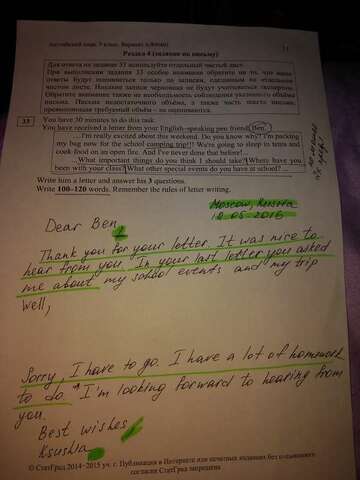 Английский язык. 9 класс. Вариант
11
Раздел 4 (задание по письму)
Для ответа на задание 33 используйте отдельный чистый лист.
При выполнении задания 33 особое внимание обратите на то, что ваши
ответы будут оцениваться только по записям, сделанным на отдельном
чистом листе. Никакие записи черновика не будут учитываться экспертом.
Обратите внимание также на необходимость соблюдения указанного объёма
письма. Письма недостаточного объёма, а также часть текста письма,
превышающая требуемый объём, не оцениваются.
33
You have 30 minutes to do this task.
You have received a letter from your English-speaking pen friend, Ben.
...I'm really excited about the weekend. Do you know why? I'm packing
my bag now for the school camping trip!!! We're going to sleep in tents and
cook food on an open fire. And I've never done that before!...
...What important things do you think I should take? Where have you
been with your class? What other special events do you have at school?
Write him a letter and answer his 3 questions.
Write 100–120 words. Remember the rules of letter writing.
Moscow, Russia
10.05.2016
Dear Ben,
Thank you for your letter. It was nice to
hear from you. In your last letter you asked
me about my school events and my trip
Well,
Sorry, I have to go. I have a lot of homework
to do. I'm looking forward to hearing from
you.
Best wishes,
Ksusha
© СтатГрад 2014–2015 уч. г. Публикация в Интернете или печатных изданиях без письменного
согласия СтатГрад запрещена